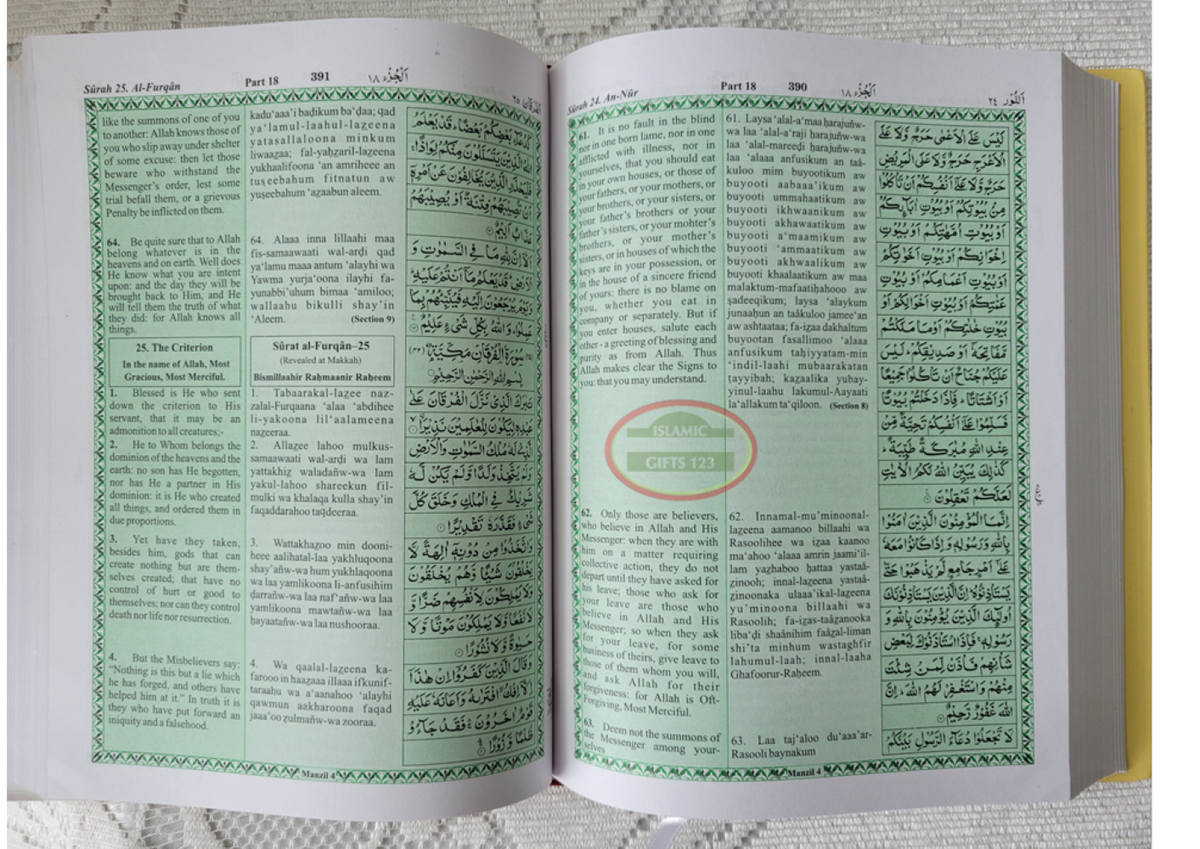 Sûrah 24. An-Nûr
Part 18
390
اَلْجُزْء ١٨
اَلنُّوْر ٢٤
61. It is no fault in the blind
nor in one born lame, nor in one
afflicted with illness, nor in
yourselves, that you should eat
in your own houses, or those of
your fathers, or your mothers, or
your brothers, or your sisters, or
your father's brothers or your
your father's sisters, or your mohter's
brothers, or your mother's
sisters, or in houses of which the
keys are in your possession, or
in the house of a sincere friend
of yours: there is no blame on
you, whether you eat in
company or separately. But if
you enter houses, salute each
other - a greeting of blessing and
purity as from Allah. Thus
Allah makes clear the Signs to
you: that you may understand.
62. Only those are believers,
who believe in Allah and His
Messenger: when they are with
him on a matter requiring
collective action, they do not
depart until they have asked for
his leave; those who ask for
your leave are those who
believe in Allah and His
Messenger; so when they ask
for your leave, for some
business of theirs, give leave to
those of them whom you will,
and ask Allah for their
forgiveness: for Allah is Oft-
Forgiving, Most Merciful.
63. Deem not the summons of
the Messenger among your-
selves
61. Laysa 'alal-a'maa ḥarajuñw-
wa laa 'alal-a'raji ḥarajuñw-wa
laa 'alal-mareeḍi ḥarajuñw-wa
laa 'alaaa anfusikum an taå-
kuloo mim buyootikum aw
buyooti aabaaa'ikum aw
buyooti ummahaatikum aw
buyooti ikhwaanikum aw
buyooti akhawaatikum aw
buyooti a'maamikum aw
buyooti 'ammaatikum aw
buyooti akhwaalikum aw
buyooti khaalaatikum aw maa
malaktum-mafaatiḥahooo aw
ṣadeeqikum; laysa 'alaykum
junaaḥun an taåkuloo jamee'an
aw ashtaataa; fa-iẓaa dakhaltum
buyootan fasallimoo 'alaaa
anfusikum taḥiyyatam-min
'indil-laahi mubaarakatan
ṭayyibah; kaẓaalika yubay-
yinul-laahu lakumul-Aayaati
la'allakum ta'qiloon. (Section 8)
62. Innamal-mu'minoonal-
lazeena aamanoo billaahi wa
Rasoolihee wa iẓaa kaanoo
ma'ahoo 'alaaa amrin jaami'il-
lam yaẓhaboo ḥattaa yastaå-
zinooh; innal-lazeena yastaå-
zinoonaka ulaaa'ikal-lazeena
yu'minoona billaahi wa
Rasoolih; fa-iẓas-taåẓanooka
liba'ḍi shaånihim faåẓal-liman
shi'ta minhum wastaghfir
lahumul-laah; innal-laaha
Ghafoorur-Raḥeem.
63. Laa taj'aloo du'aaa'ar-
Rasooli baynakum
لَيْسَ عَلَى الْاَعْمٰى حَرَجٌ وَّلَا عَلَى
الْاَعْرَجِ حَرَجٌ وَّلَا عَلَى الْمَرِيْضِ
حَرَجٌ وَّلَا عَلٰٓى اَنْفُسِكُمْ اَنْ تَاْكُلُوْا
مِنْۢ بُيُوْتِكُمْ اَوْ بُيُوْتِ اٰبَآئِكُمْ
اَوْ بُيُوْتِ اُمَّهٰتِكُمْ اَوْ بُيُوْتِ
اِخْوَانِكُمْ اَوْ بُيُوْتِ اَخَوٰتِكُمْ
اَوْ بُيُوْتِ اَعْمَامِكُمْ اَوْ بُيُوْتِ
عَمّٰتِكُمْ اَوْ بُيُوْتِ اَخْوَالِكُمْ اَوْ
بُيُوْتِ خٰلٰتِكُمْ اَوْ مَا مَلَكْتُمْ
مَّفَاتِحَهٗٓ اَوْ صَدِيْقِكُمْ ؕ لَيْسَ
عَلَيْكُمْ جُنَاحٌ اَنْ تَاْكُلُوْا جَمِيْعًا
اَوْ اَشْتَاتًا ؕ فَاِذَا دَخَلْتُمْ بُيُوْتًا
فَسَلِّمُوْا عَلٰٓى اَنْفُسِكُمْ تَحِيَّةً مِّنْ
عِنْدِ اللّٰهِ مُبٰرَكَةً طَيِّبَةً ؕ
كَذٰلِكَ يُبَيِّنُ اللّٰهُ لَكُمُ الْاٰيٰتِ
لَعَلَّكُمْ تَعْقِلُوْنَ
اِنَّمَا الْمُؤْمِنُوْنَ الَّذِيْنَ اٰمَنُوْا
بِاللّٰهِ وَرَسُوْلِهٖ وَاِذَا كَانُوْا مَعَهٗ
عَلٰٓى اَمْرٍ جَامِعٍ لَّمْ يَذْهَبُوْا حَتّٰى
يَسْتَاْذِنُوْهُ ؕ اِنَّ الَّذِيْنَ يَسْتَاْذِنُوْنَكَ
اُولٰٓئِكَ الَّذِيْنَ يُؤْمِنُوْنَ بِاللّٰهِ وَ
رَسُوْلِهٖ ۚ فَاِذَا اسْتَاْذَنُوْكَ لِبَعْضِ
شَاْنِهِمْ فَاْذَنْ لِّمَنْ شِئْتَ
مِنْهُمْ وَاسْتَغْفِرْ لَهُمُ اللّٰهَ ؕ اِنَّ
اللّٰهَ غَفُوْرٌ رَّحِيْمٌ
لَا تَجْعَلُوْا دُعَآءَ الرَّسُوْلِ بَيْنَكُمْ
Manzil 4
ISLAMIC
GIFTS 123
Sûrah 25. Al-Furqân
Part 18
391
اَلْجُزْء ١٨
اَلْفُرْقَان ٢٥
like the summons of one of you
to another: Allah knows those of
you who slip away under shelter
of some excuse: then let those
beware who withstand the
Messenger's order, lest some
trial befall them, or a grievous
Penalty be inflicted on them.
64. Be quite sure that to Allah
belong whatever is in the
heavens and on earth. Well does
He know what you are intent
upon: and the day they will be
brought back to Him, and He
will tell them the truth of what
they did: for Allah knows all
things.
25. The Criterion
In the name of Allah, Most
Gracious, Most Merciful.
1. Blessed is He who sent
down the criterion to His
servant, that it may be an
admonition to all creatures;-
2. He to Whom belongs the
dominion of the heavens and the
earth: no son has He begotten,
nor has He a partner in His
dominion: it is He who created
all things, and ordered them in
due proportions.
3. Yet have they taken,
besides him, gods that can
create nothing but are them-
selves created; that have no
control of hurt or good to
themselves; nor can they control
death nor life nor resurrection.
4. But the Misbelievers say:
"Nothing is this but a lie which
he has forged, and others have
helped him at it." In truth it is
they who have put forward an
iniquity and a falsehood.
kaḍu'aaa'i baḍikum ba'ḍaa; qad
ya'lamul-laahul-lazeena
yatasallaloona minkum
liwaazaa; fal-yaḥẓaril-lazeena
yukhaalifoona 'an amriheee an
tuṣeebahum fitnatun aw
yuṣeebahum 'aẓaabun aleem.
64. Alaaa inna lillaahi maa
fis-samaawaati wal-arḍi qad
ya'lamu maaa antum 'alayhi wa
Yawma yurja'oona ilayhi fa-
yunabbi'uhum bimaa 'amiloo;
wallaahu bikulli shay'in
'Aleem. (Section 9)
Sûrat al-Furqân–25
(Revealed at Makkah)
Bismillaahir Raḥmaanir Raḥeem
1. Tabaarakal-lazee naz-
zalal-Furqaana 'alaa 'abdihee
li-yakoona lil'aalameena
nazeeraa.
2. Allazee lahoo mulkus-
samaawaati wal-arḍi wa lam
yattakhiẓ waladañw-wa lam
yakul-lahoo shareekun fil-
mulki wa khalaqa kulla shay'in
faqaddarahoo taqdeeraa.
3. Wattakhazoo min dooni-
heee aalihatal-laa yakhluqoona
shay'añw-wa hum yukhlaqoona
wa laa yamlikoona li-anfusihim
ḍarrañw-wa laa naf'añw-wa laa
yamlikoona mawtañw-wa laa
ḥayaatañw-wa laa nushooraa.
4. Wa qaalal-lazeena ka-
farooo in haazaaa illaaa ifkunif-
taraahu wa a'aanahoo 'alayhi
qawmun aakharoona faqad
jaaa'oo zulmañw-wa zooraa.
كَدُعَآءِ بَعْضِكُمْ بَعْضًا ؕ قَدْ يَعْلَمُ
اللّٰهُ الَّذِيْنَ يَتَسَلَّلُوْنَ مِنْكُمْ لِوَاذًا ۚ
فَلْيَحْذَرِ الَّذِيْنَ يُخَالِفُوْنَ عَنْ اَمْرِهٖٓ
اَنْ تُصِيْبَهُمْ فِتْنَةٌ اَوْ يُصِيْبَهُمْ
عَذَابٌ اَلِيْمٌ
اَلَآ اِنَّ لِلّٰهِ مَا فِى السَّمٰوٰتِ وَ
الْاَرْضِ ؕ قَدْ يَعْلَمُ مَآ اَنْتُمْ عَلَيْهِ ؕ
وَيَوْمَ يُرْجَعُوْنَ اِلَيْهِ فَيُنَبِّئُهُمْ بِمَا
عَمِلُوْا ؕ وَاللّٰهُ بِكُلِّ شَىْءٍ عَلِيْمٌ
(٢٥) سُوْرَةُ الْفُرْقَانِ مَكِّيَّةٌ (٤٢)
بِسْمِ اللّٰهِ الرَّحْمٰنِ الرَّحِيْمِ
تَبٰرَكَ الَّذِىْ نَزَّلَ الْفُرْقَانَ عَلٰى
عَبْدِهٖ لِيَكُوْنَ لِلْعٰلَمِيْنَ نَذِيْرًا
اِلَّذِىْ لَهٗ مُلْكُ السَّمٰوٰتِ وَالْاَرْضِ
وَلَمْ يَتَّخِذْ وَلَدًا وَّلَمْ يَكُنْ لَّهٗ
شَرِيْكٌ فِى الْمُلْكِ وَخَلَقَ كُلَّ
شَىْءٍ فَقَدَّرَهٗ تَقْدِيْرًا
وَاتَّخَذُوْا مِنْ دُوْنِهٖٓ اٰلِهَةً لَّا
يَخْلُقُوْنَ شَيْئًا وَّهُمْ يُخْلَقُوْنَ
وَلَا يَمْلِكُوْنَ لِاَنْفُسِهِمْ ضَرًّا وَّ
لَا نَفْعًا وَّلَا يَمْلِكُوْنَ مَوْتًا وَّلَا
حَيٰوةً وَّلَا نُشُوْرًا
وَقَالَ الَّذِيْنَ كَفَرُوْٓا اِنْ هٰذَآ
اِلَّآ اِفْكُ اِۨفْتَرٰىهُ وَاَعَانَهٗ عَلَيْهِ
قَوْمٌ اٰخَرُوْنَ ۚ فَقَدْ جَآءُوْ
ظُلْمًا وَّزُوْرًا
Manzil 4